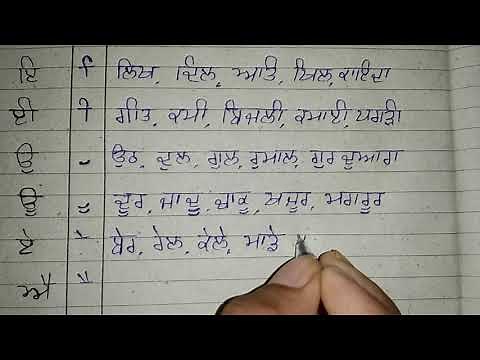 ਇ ਿ ਲਿਖ, ਦਿਲ, ਖਿਲ, ਕਾਇਦਾ
ਈ ੀ ਗੀਤ, ਕਮੀ, ਬਿਜਲੀ, ਕਮਾਈ, ਪਗੜੀ
ਉ ੁ ਉਠ, ਗੁਲ, ਰੁਮਾਲ, ਗੁਰਦੁਆਰਾ
ਊ ੂ ਦੂਰ, ਜਾਦੂ, ਚਾਕੂ, ਖਜੂਰ, ਮਗਰੂਰ
ਏ ੇ ਬੇਰ, ਰੇਲ, ਕੇਲੇ, ਮਾੜੇ
ਐ ੈ